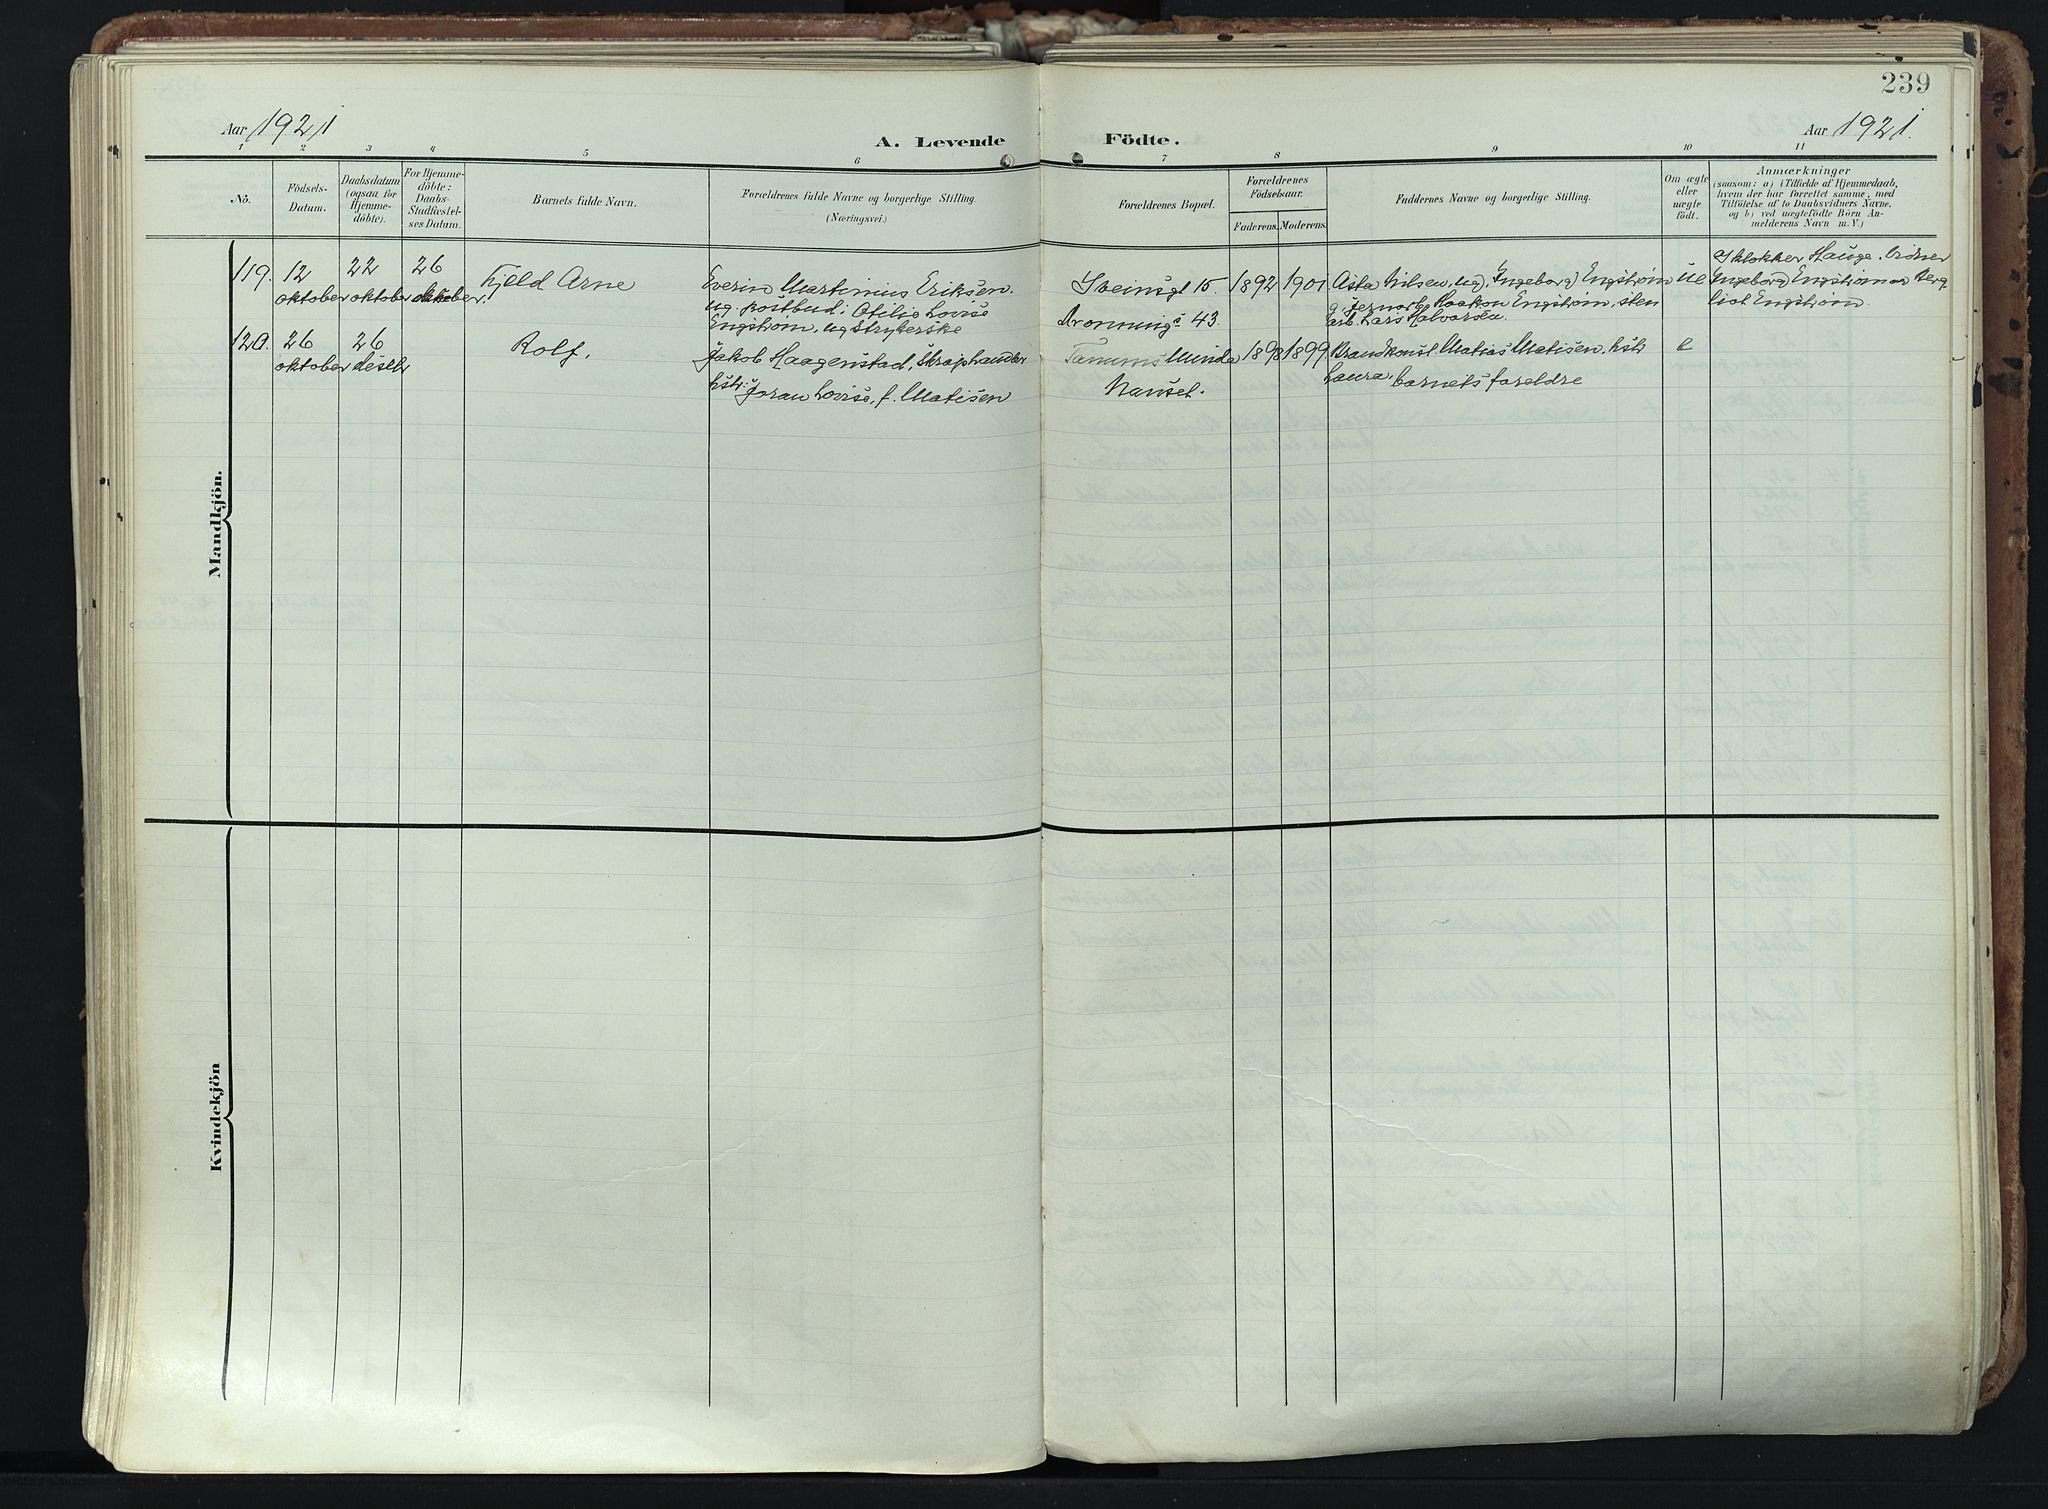 239
Aar 1921
A. Levende Födte.
Aar 1921.
1 2 3 4 5 6 7 8 9 10 11
No.
Födsels-
Datum.
Daabsdatum
(ogsaa for
Hjemme-
döbte).
For Hjemme-
döbte:
Daabs-
Stadfæstel-
ses Datum.
Barnets fulde Navn.
Forældrenes fulde Navne og borgerlige Stilling.
(Næringsvei.)
Forældrenes Bopæl.
Forældrenes
Födselsaar.
Faderens.
Moderens.
Faddernes Navne og borgerlige Stilling.
Om ægte
eller
uægte
födt.
Anmærkninger
(saasom: a) i Tilfælde af Hjemmedaab,
hvem der har forrettet samme, med
Tilföielse af to Daabsvidners Navne,
og b) ved uægtefödte Börn An-
melderens Navn m. V.)
Mandkjön.
119.
12
oktober
22
oktober
26
oktober.
Kjeld Arne
Everin Martinius Eriksen,
ug. postbud; Otilie Lovise
Engstrøm, ug strykerske
Sveinsgt 15.
Dronningˢ 43.
1892
1901
Asta Nilsen, ug, Ingeborg Engstrøm
g, jernarb Haakon Engstrøm, sten
arb. Lars Halvorsen
ue
Klokker Hauge. Vidner
Ingeborg Engstrøm og Berg
liot Engstrøm.
120.
26
oktober
26
desbr
Rolf.
Jakob Haagenstad, skraphandler
hstr: Joran Lovise, f. Matisen
Tanums Minde
Nanset.
1898
1899
Brandkonst. Matias Matisen, hstr
Laura, barnets foreldre
e
Kvindekjön